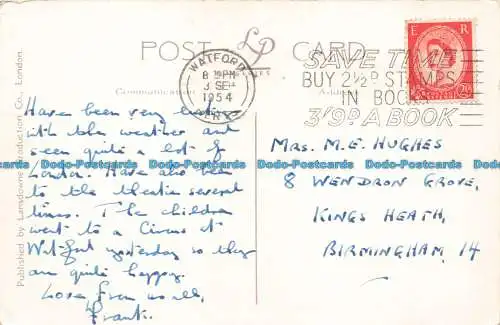 POST CARD
LP
SERIES
Communication
Address
Published by Lansdowne Production Co., London.
WATFORD
8 PM
3 SEP
1954
SAVE TIME
BUY 2½D STAMPS
IN BOOKS
3'9D A BOOK
E R
Have been very lucky
with the weather and
seen quite a lot of
London. Have also been
to the theatre several
times. The children
went to a Circus at
Watford yesterday so they
are quite happy.
Love from us all,
Frank.
MRS. M.E. HUGHES
8 WENDRON GROVE,
KINGS HEATH,
BIRMINGHAM, 14
Dodo-Postcards Dodo-Postcards Dodo-Postcards Dodo-Postcards